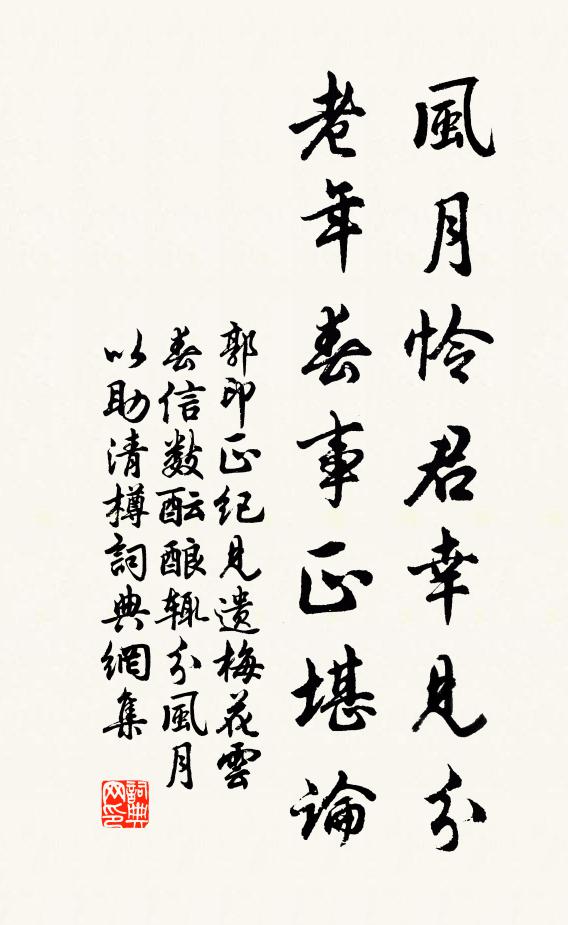 風月怜君幸見分
老年春事正堪論
郭印正紀見遺梅花雲
春信數酝酿辄分風月
以助清樽詞典網集
詞典网印